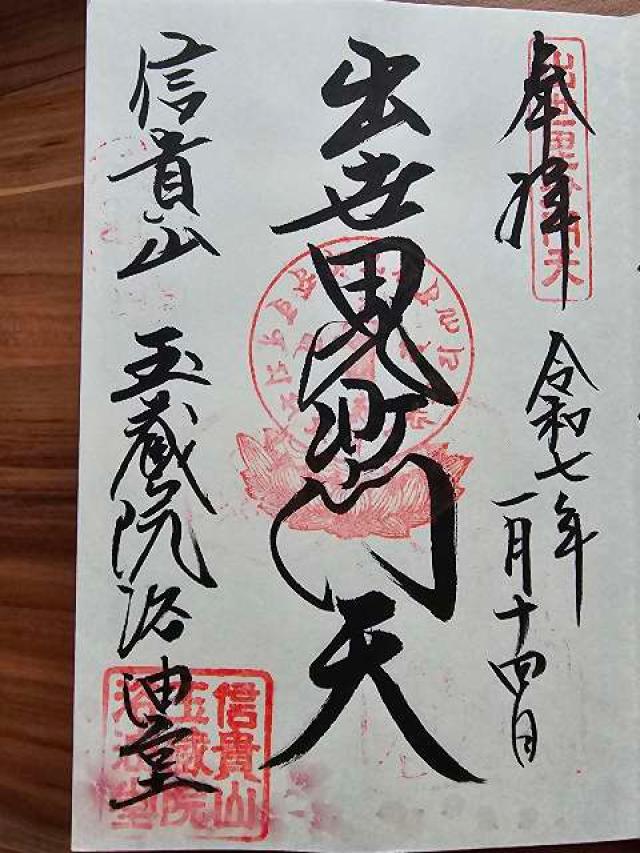 奉拝
出世毘沙門天
令和七年
一月十四日
出世毘沙門天
信貴山
玉蔵院浴油堂
信貴山
玉蔵院
浴油堂